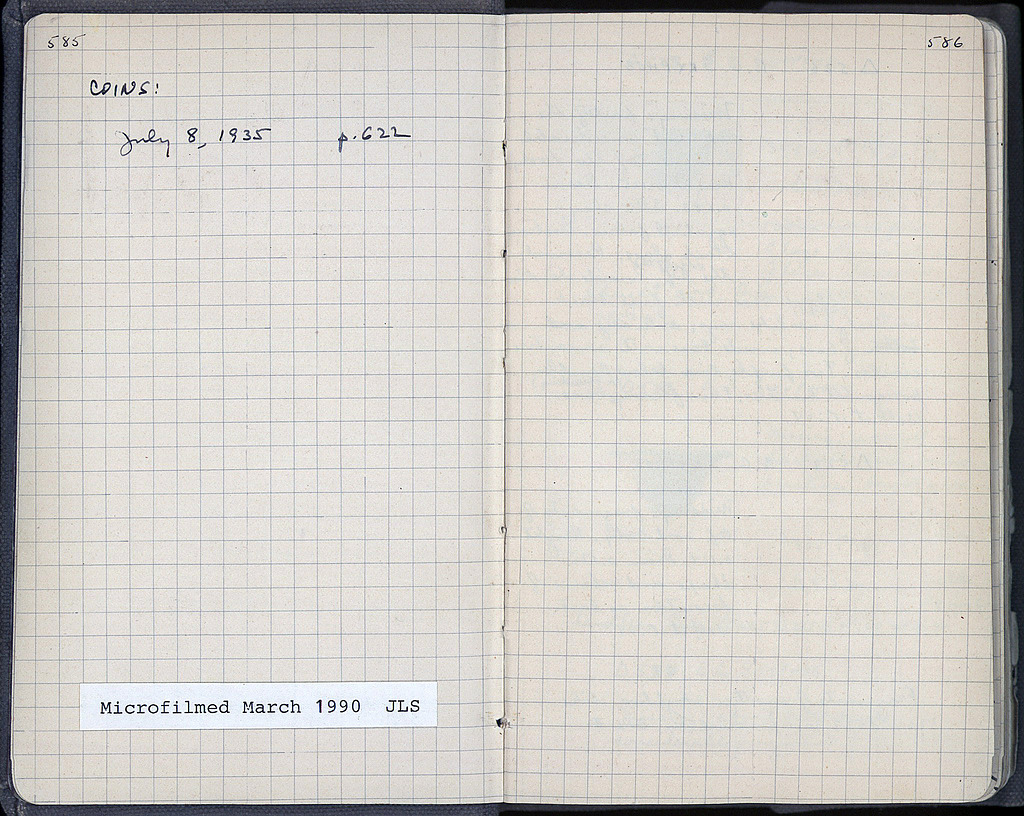 585
COINS:
July 8, 1935 p. 622
Microfilmed March 1990 JLS
586